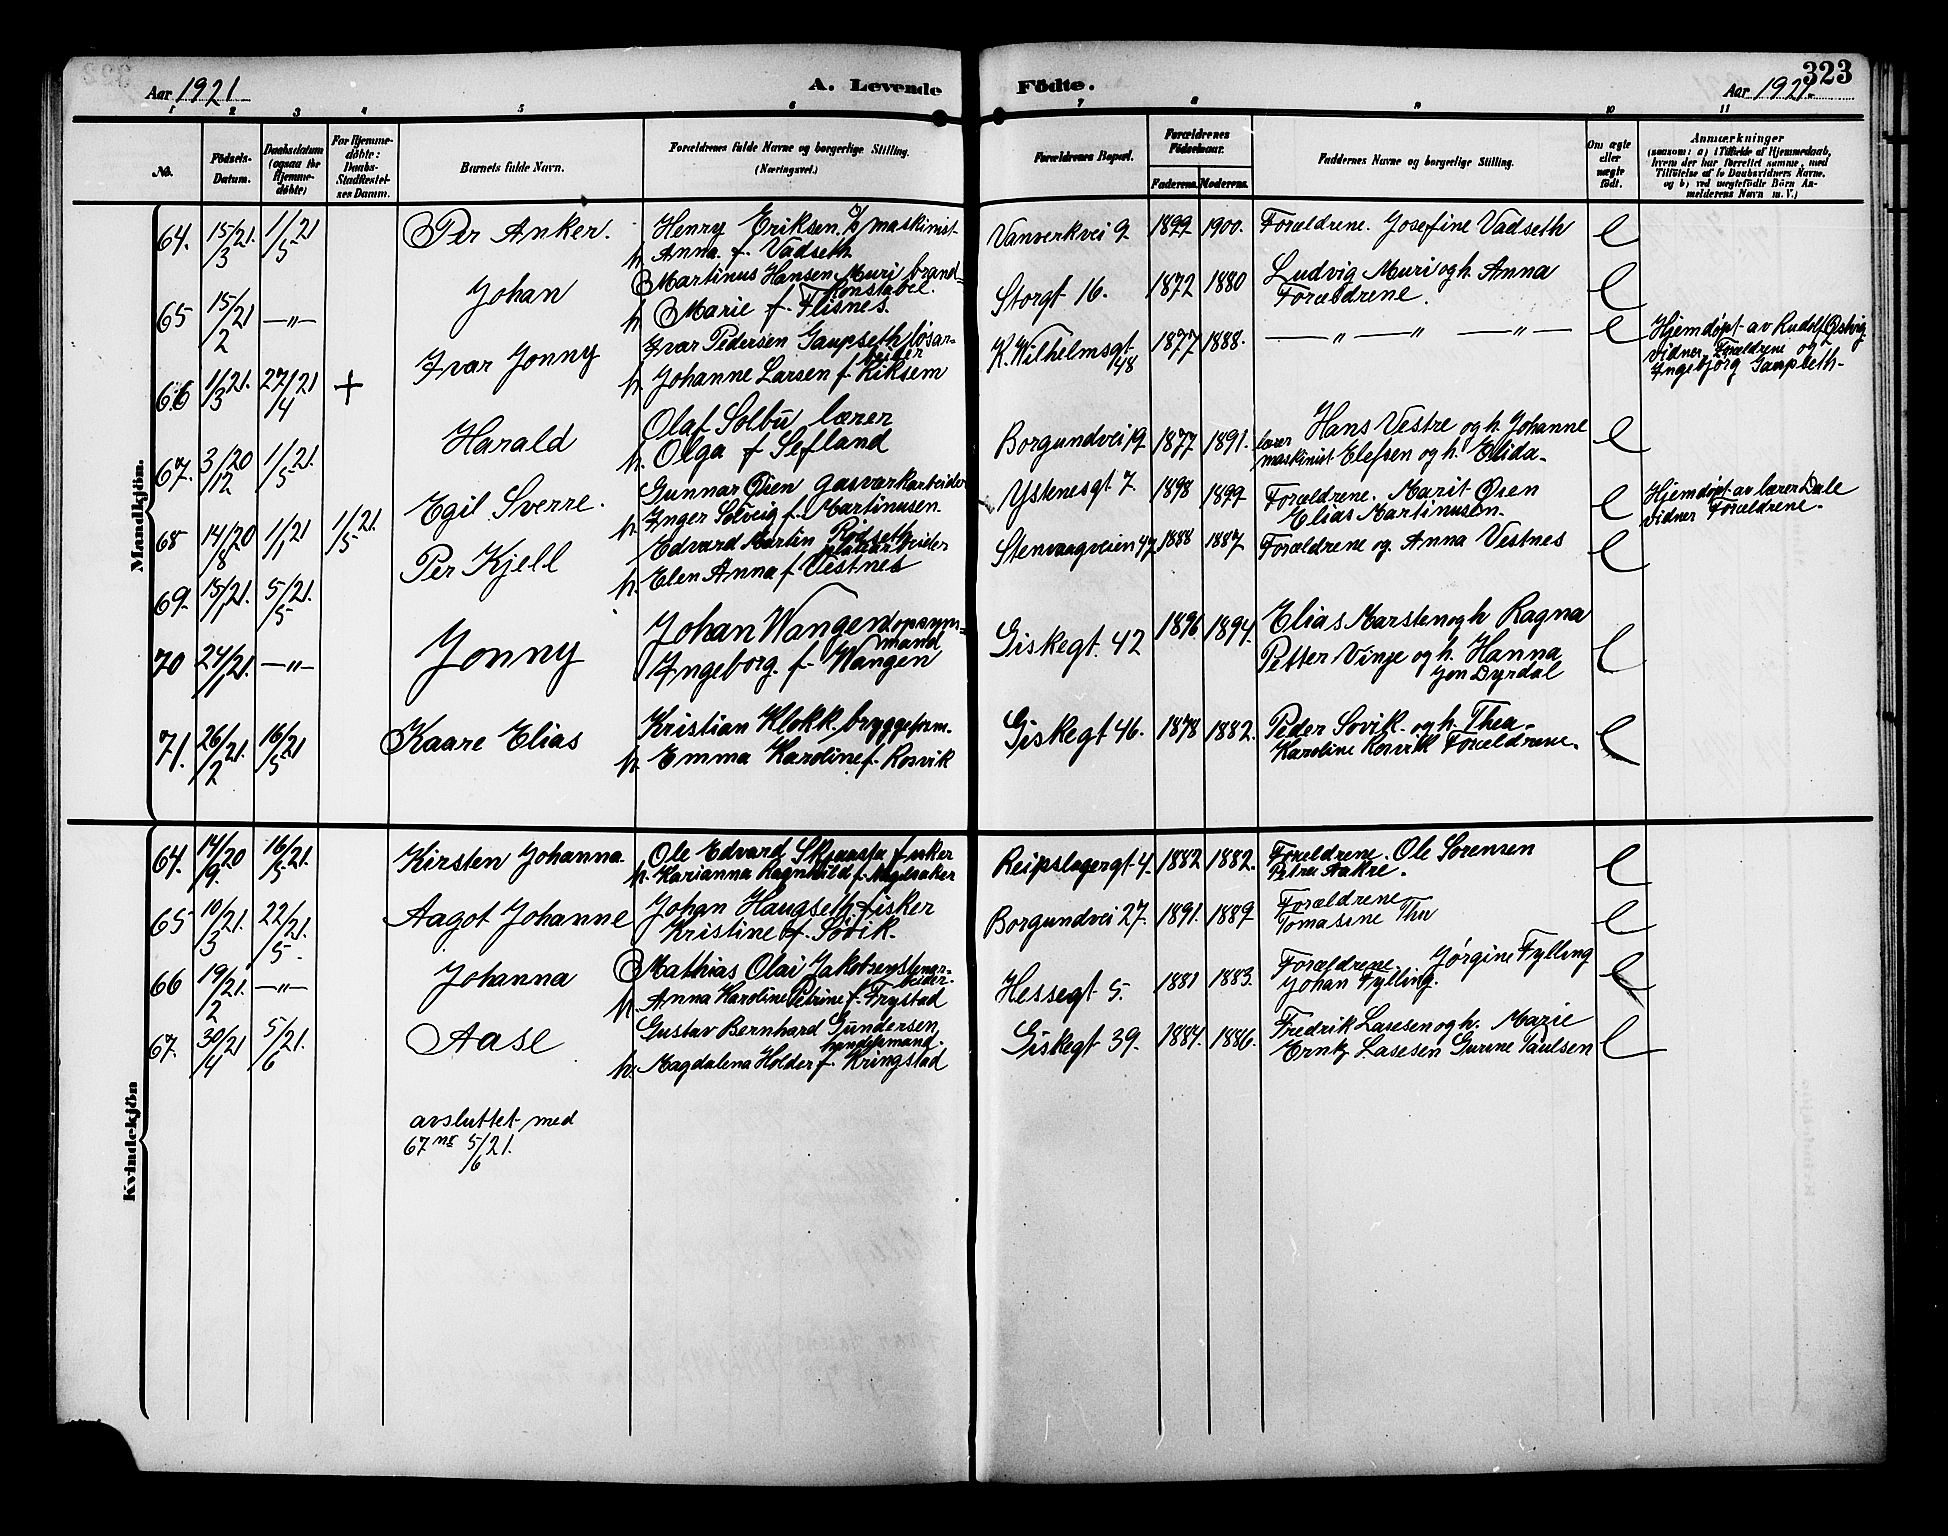 323
Aar 1921 A. Levende Födte. Aar 1921.
1 2 3 4 5 6 7 8 9 10 11
No. Födsels-Datum. Daabsdatum (ogsaa for Hjemme-döbte) For Hjemme-döbte: Daabs-Stadfæstel-ses Datum. Barnets fulde Navn. Forældrenes fulde Navne og borgerlige Stilling. (Næringsvei.) Forældrenes Bopæl. Forældrenes Födselsaar. Faderens. Moderens. Faddernes Navne og borgerlige Stilling. Om ægte eller uægte født. Anmærkninger (saasom: a) i Tilfælde af Hjemmedaab, hvem der har forrettet samme, med Tilföielse af to Daabsvidners Navne, og b) ved uægtefödte Börn An-melderens Navn m. V.)
Mandkjön.
64. 15/3 21. 1/5 21 Per Anker. Henry Eriksen maskinist Vanverkvei 9. 1899 1900. Forældrene. Josefine Vadseth e
h. Anna f. Vadseth
65 15/2 21 —"— Johan Martinus Hansen Muri brand-konstabel. Storgt 16. 1872 1880 Ludvig Muri og h. Anna e
h. Marie f. Flisnes. Forældrene.
66 1/3 21. 27/4 21 + Ivar Jonny Ivar Pedersen Gaupseth løsar-beider K. Wilhelmsgt 48 1877 1888. —"— —"— —"— e Hjemdøpt av Rudolf Østvig
h. Johanne Larsen f. Kiksem vidner Forældrene og
Ingebjørg Gaupseth-
67. 3/12 20 1/5 21. Harald Olaf Solbu lærer Borgundvei 19. 1877 1891. lærer Hans Vestre og h. Johanne e
h. Olga f Sefland maskinist Elefsen og h. Elida-
68 14/8 20 1/1 21 1/5 21. Egil Sverre. Gunnar Øien gasværkarbeider Ystenesgt 7 1898 1899 Forældrene. Marit Øien e Hjemdøpt av lærer Dale
h. Inger Solveig f. Martinusen. Elias Martinusen. vidner Forældrene.
69. 15/1 21. 5/5 21. Per Kjell Edvard Martin Stenvaagveien 47 1888 1887 Forældrene og Anna Vestnes e
h. Elen Anna f Vestnes
70 24/1 21. —"— Jonny Johan Wangen opsyns-mand Giskegt. 42 1896 1894. Elias Marsten og h Ragna e
Ingeborg. f. Wangen Petter Vinje og h. Hanna
Jon Dyrdal
71. 26/2 21. 16/5 21 Kaare Elias Kristian Klokk. bryggeform. Giskegt 46. 1878 1882. Peder Sovik. og h. Thea e
h. Emma Karoline f. Rosvik Karoline Rosvik Forældrene.
Kvindekjön
64. 14/9 20 16/5 21. Kirsten Johanna. Ole Edvard fisker Reipslagergt 4. 1882 1882. Forældrene. Ole Sorensen e
h. Karianna Ragnhild f. Petra Aakre.
65 10/3 21. 22/5 21. Aagot Johanne Johan Haugseth. fisker Borgundvei 27. 1891. 1889 Forældrene e
Kristine f. Sovik. Tomasine Thu
66 19/2 21. —"— Johanna Mathias Olai Jakobsen stenar-beider- Hessegt 5. 1881 1883. Forældrene. Jørgine Fylling e
h. Anna Karoline Petrine f. Frystad Johan Fylling.
67. 30/4 21 5/6 21. Aase Gustav Bernhard Gundersen handelsmand. Giskegt 39. 1884. 1886. Fredrik Lasesen og h. Marie e
h. Magdalena Holder f. Kringstad Lasesen Paulsen
avsluttet med
67 nr 5/6 21.